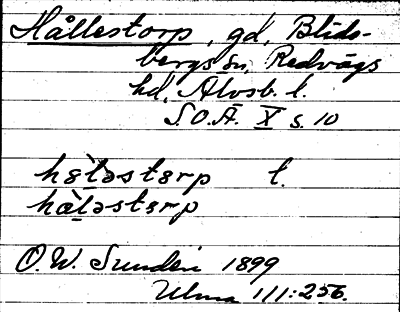 Hållestorp, gd, Blids-
bergs sn, Redvägs
hd, Älvsb. l.
S.O.Ä. X s. 10
hòləstərp l.
hàləstərp
O.W. Sundén 1899
Ulma 111:256.